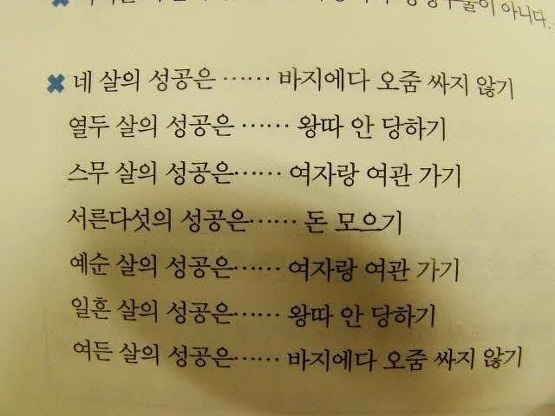 이 아니다.
✖ 네 살의 성공은 …… 바지에다 오줌 싸지 않기
열두 살의 성공은 …… 왕따 안 당하기
스무 살의 성공은 …… 여자랑 여관 가기
서른다섯의 성공은…… 돈 모으기
예순 살의 성공은…… 여자랑 여관 가기
일흔 살의 성공은…… 왕따 안 당하기
여든 살의 성공은…… 바지에다 오줌 싸지 않기